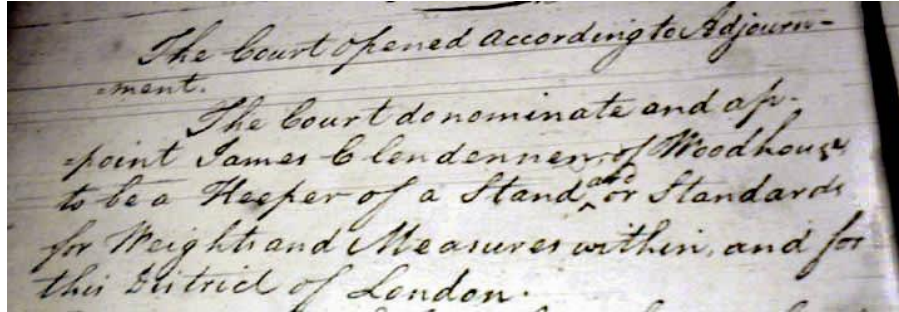 The Court opened according to Adjourn-
-ment.
The Court do nominate and ap-
-point James Clendennen, of Woodhouse
to be a Keeper of a Stand^ard or Standards
for Weights and Measures within, and for
this District of London.